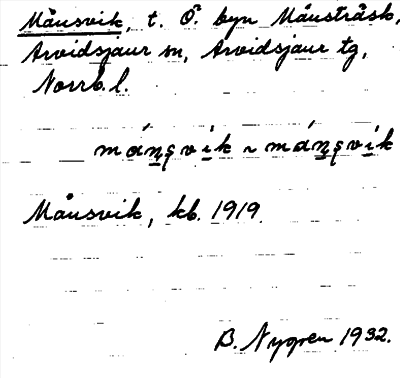 Månsvik, t. Ö. byn Månsträsk,
Arvidsjaur sn, Arvidsjaur tg,
Norrb. l.
Månsvik, kb. 1919
B. Nygren 1932.